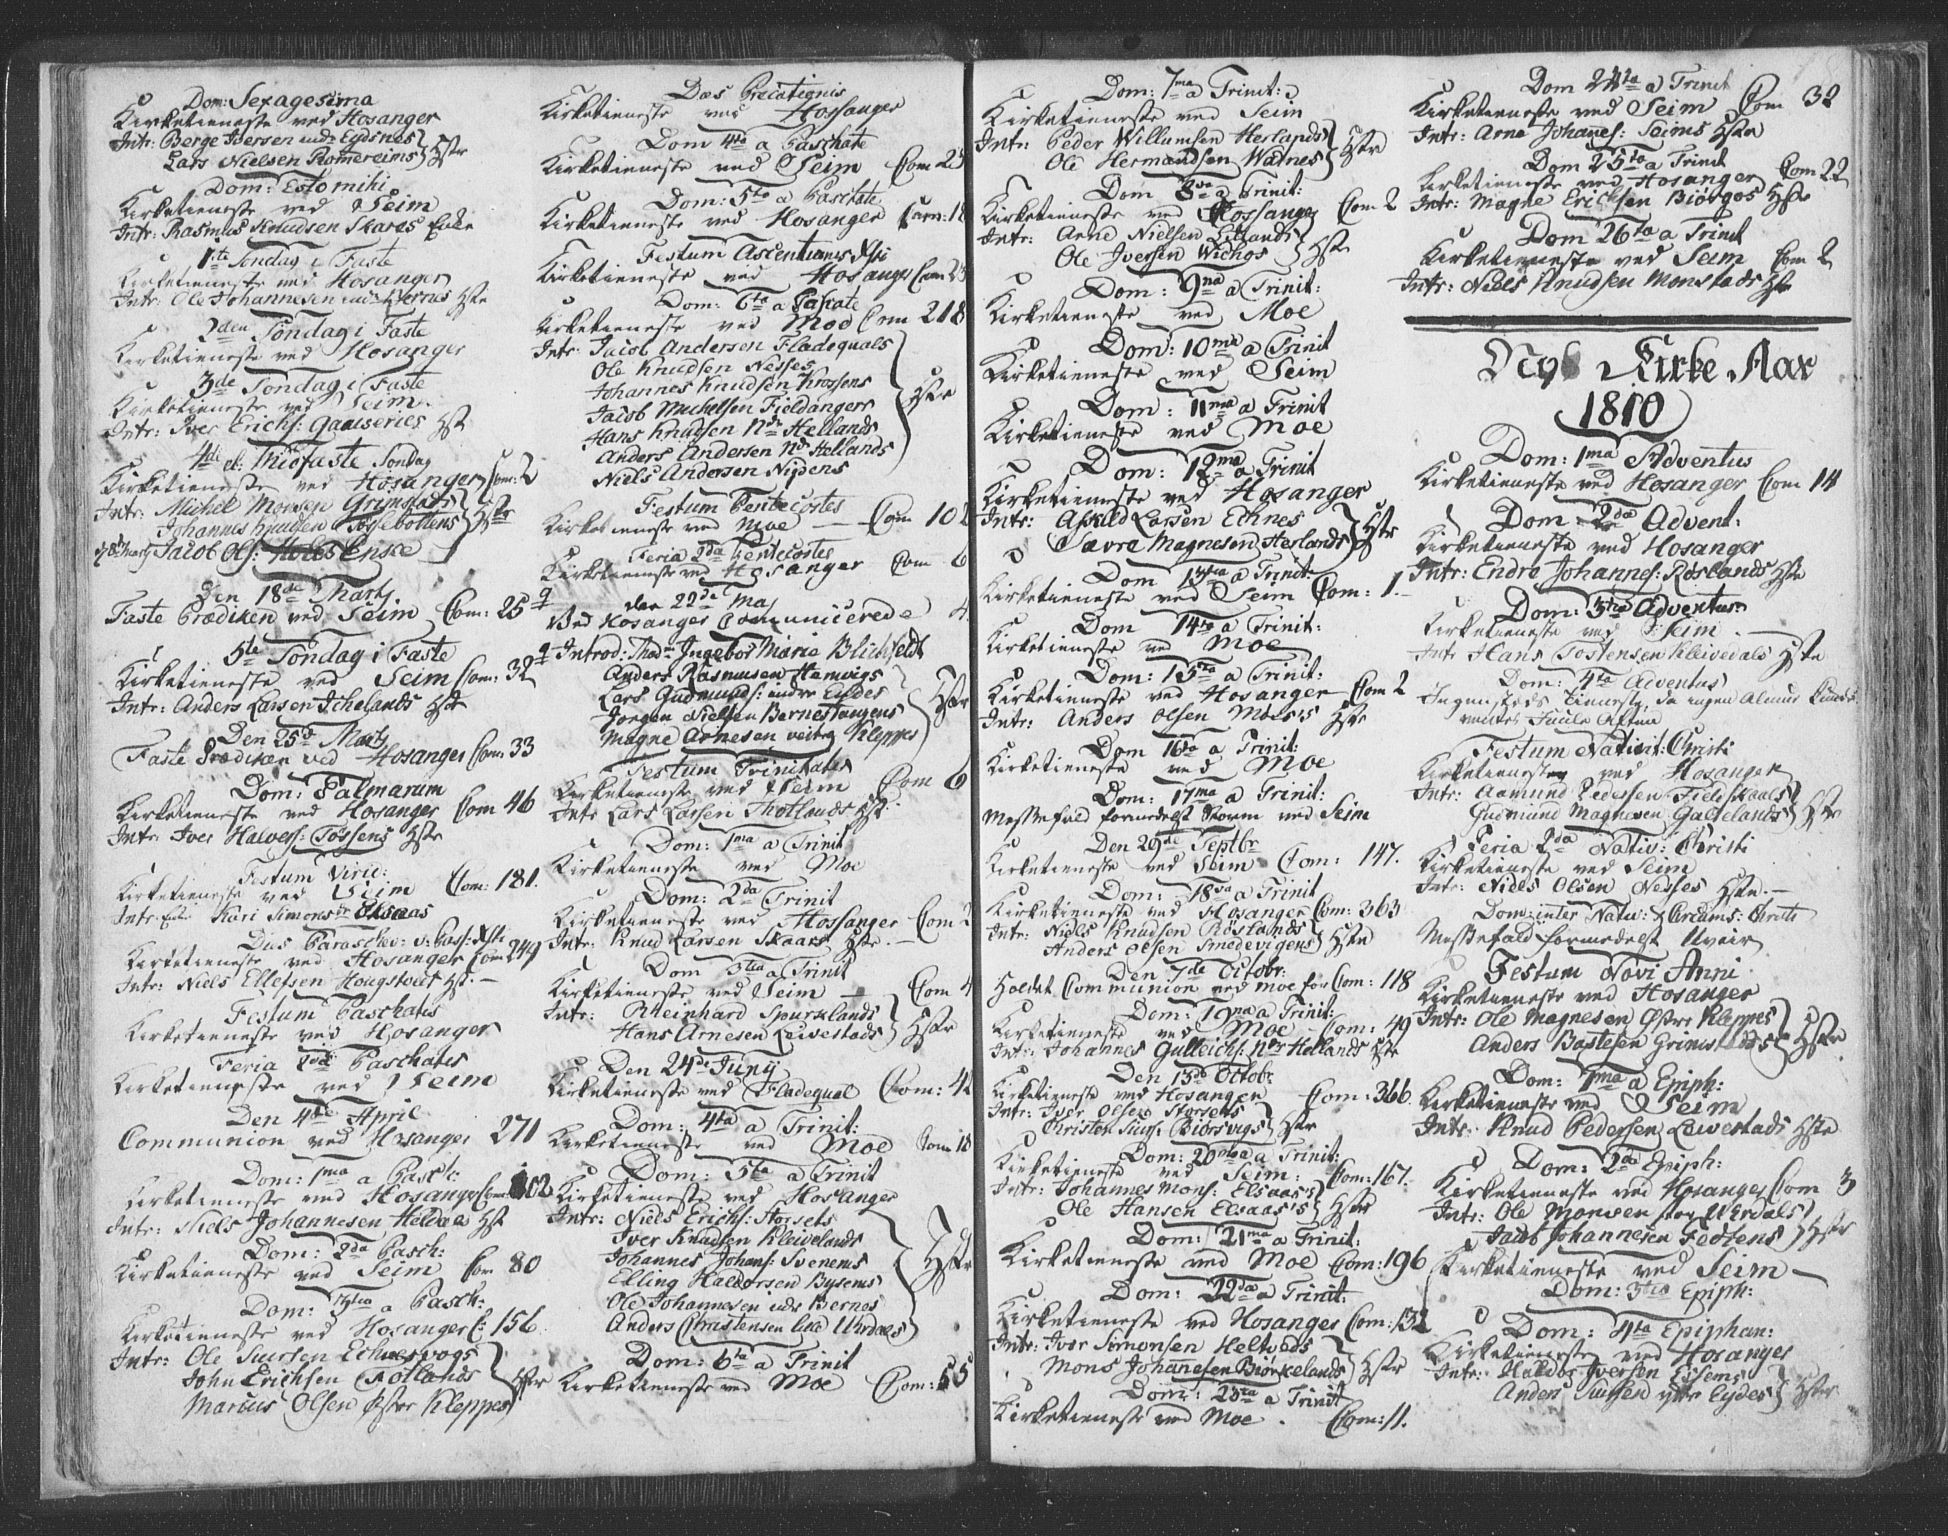 Dom: Sexagesima
Kirketieneste ved Hosanger
Intr: Berge Iversen indr Eydsnes
Lars Nielsen Romereims Hstr
Dom: Estomihi
Kirketieneste ved Seim
Intr: Rasmus Knudsen Skares
1ste Söndag i Faste
Kirketieneste ved Hosanger
Intr: Ole Johannesen Hste
2den Söndag i Faste
Kirketieneste ved Hosanger
3de Söndag i Faste
Kirketieneste ved Seim.
Intr: Iver Erichs: Hst
4de el: Midfaste Söndag
Kirketieneste ved Hosanger Com: 2
Intr: Michel Monsen Grimstads
Johannes Knudsen Hstr
Jacob Ols:
Den 18de Martj
Faste Prædiken ved Seim Com: 25
5te Söndag i Faste
Kirketieneste ved Seim Com: 32
Intr: Anders Larsen Ichelands Hst
Den 25de Martj
Faste Prædiken ved Hosanger Com: 33
Dom: Palmarum
Kirketieneste ved Hosanger Com 46
Intr: Iver Halvers: Tossens Hste
Festum Virid:
Kirketieneste ved Seim Com: 181.
Intr: Kari Simonsdr Elsaas
Dies Paraschev: v: Pass: Xsti
Kirketieneste ved Hosanger Com 249
Intr: Niels Ellefsen Hougstvedt Hst. –
Festum Paschatis
Kirketieneste ved Hosanger
Feria 2da Paschatis
Kirketieneste ved Seim
Den 4de April
Communion ved Hosanger 271
Dom: 1ma a Pasch:
Kirketieneste ved Hosanger Com: 102
Intr: Niels Johannesen Heldals Hst
Dom: 2da Pasch:
Kirketieneste ved Seim Com 80
Dom: 3tia a Pasch:
Kirketieneste ved Hosanger C: 156
Intr: Ole Siursen Echnesvogs
John Erichsen Röllands Hstr
Marcus Olsen Öster Kleppes
Dies Precationis
Kirketieneste ved Hossanger
Dom 4ta a Paschate
Kirketieneste ved Seim Com 23
Dom: 5ta a Paschate
Kirketieneste ved Hosanger Com: 18
Festum Ascentionis Xsti
Kirketieneste ved Hosanger Com: 23
Dom: 6ta a Paschate
Kirketieneste ved Moe Com 218
Intr: Jacob Andersen Fladequals
Ole Knudsen Nesses
Johannes Knudsen Krossens
Jacob Michelsen Fieldangers Hstr
Hans Knudsen Ndr Hellands
Anders Andersen Ndr Hellands
Niels Andersen Nydens
Festum Pentecostes
Kirketieneste ved Moe — Com 102
Feria 2da Pentecostes
Kirketieneste ved Hosanger Com 6
den 22de Maj
Ved Hosanger Communicerede 4
Introd: Mad: Ingebor Marie Blichfeldt
Anders Rasmussen Hamvigs
Lars Gudmunds: indre Eydes
Jorgen Nielsen Bernestangens Hstr
Magne Arnesen vestre Kleppes
Festum Trinitatis
Kirketieneste ved Seim Com 6
Intr Lars Larsen Totlands Hst.
Dom: 1ma a Trinit
Kirketieneste ved Moe
Dom: 2da Trinit
Kirketieneste ved Hossanger Com 2
Intr: Knud Larsen Skaars Hste. –
Dom 3tia a Trinit
Kirketieneste ved Seim — Com 4
Intr: Rheinhard Spurklands
Hans Arnesen Leivestads Hstr
Den 24de Junij
Kirketieneste ved Fladequal Com: 42
Dom: 4ta a Trinit:
Kirketieneste ved Moe Com 18
Dom: 5ta a Trinit
Kirketieneste ved Hosanger
Intr: Niels Erichs: Storsets
Iver Knudsen Kleivelands
Johannes Johans: Svenems
Elling Haldorsen Bysems Hstr
Ole Johannesen indr Bernes
Anders Christensen lille Urdals
Dom: 6ta a Trinit
Kirketieneste ved Moe Com: 55
Dom: 7ma a Trinit:
Kirketieneste ved Seim
Intr: Peder Willumsen Herlands
Ole Hermandsen Watnes Hstr
Dom 8va a Trinit:
Kirketieneste ved Hossanger Com 2
Intr: Arne Nielsen Litlands
Ole Iversen Wichos Hstr
Dom: 9na a Trinit:
Kirketieneste ved Moe
Dom: 10ma a Trinit
Kirketieneste ved Seim
Dom: 11ma a Trinit
Kirketieneste ved Moe
Dom: 12ma a Trinit
Kirketieneste ved Hosanger
Intr: Askild Larsen Echnes
Sævre Magnesen Herlands Hstr
Dom 13tia a Trinit:
Kirketieneste ved Seim Com: 1.
Dom 14ta a Trinit:
Kirketieneste ved Moe
Dom: 15ta a Trinit:
Kirketieneste ved Hosanger Com 2
Intr: Anders Olsen Moes's Hstr
Dom 16ta a Trinit:
Kirketieneste ved Moe
Dom: 17ma a Trinit:
Messefald formedelst Storm ved Seim
Den 29de Septbr
Kirketieneste ved Seim Com: 147.
Dom: 18va a Trinit
Kirketieneste ved Hosanger Com: 363
Intr: Niels Knudsen Röslands
Anders Olsen Smedevigens Hstr
Den 7de Octobr:
Holdet Communion ved Moe for Com: 118
Dom: 19na a Trinit:
Kirketieneste ved Moe Com: 49
Intr: Johannes Gulleichs: Ndr Hellands Hste
Den 13de Octobr
Kirketieneste ved Hosanger Com: 366.
Intr: Iver Olsen Storsets
Christen Siurs: Biorsvigs Hstr
Dom: 20ma a Trinit:
Kirketieneste ved Seim. Com: 167.
Intr: Johannes Mons: Elsaas's
Ole Hansen Elsaas's Hstr
Dom: 21ma a Trinit:
Kirketieneste ved Moe Com: 196
Dom: 22da a Trinit:
Kirketieneste ved Hosanger Com: 132
Intr: Iver Simonsen Heltveds
Mons Johannesen Biörkelands Hstr
Dom: 23tia a Trinit
Kirketieneste ved Moe. Com: 11.
Dom 24ta a Trinit
Kirketieneste ved Seim Com 32
Intr: Arne Johanes: Seims Hste
Dom 25ta a Trinit
Kirketieneste ved Hosanger Com 22
Intr: Magne Erichsen Biörgos Hste
Dom 26ta a Trinit
Kirketieneste ved Seim Com 2
Intr: Niels Knudsen Monstads Hst
Nyt Kirke Aar
1810
Dom: 1ma Adventus
Kirketieneste ved Hosanger Com 14
Dom: 2da Advent:
Kirketieneste ved Hosanger
Intr: Endre Johannes: Röslands Hste
Dom: 3tia Adventus
Kirketieneste ved Seim. —
Intr Hans Tostensen Kleivedals Hste
Dom: 4ta Adventus
Ingensteds Tieneste, da ingen Almue
ventes Juule Aften
Festum Nativit: Christi
Kirketienesten ved Hosanger
Intr: Aamund Pedersen Fieldskaals
Gudmund Magnesen Hstr
Feria 2da Nativ: Christi
Kirketieneste ved Seim
Intr: Niels Olsen Nesses Hste. –
Dom: inter Nativ: & Circums: Christi
Messefald formedelst Uveir
Festum Novi Anni
Kirketieneste ved Hosanger
Intr: Ole Magnesen Östre Kleppes
Anders Bastesen Grimstads Hstr
Dom: 1ma a Epiph:
Kirketieneste ved Seim
Intr: Knud Pedersen Leivestads Hste
Dom: 2da Epiph:
Kirketieneste ved Hosanger Com 3
Intr: Ole Monsen stor Urdals
Jacob Johannesen Fedsens Hstr
Kirketieneste ved Seim —
Dom: 3tia Epiph:
Dom: 4ta Epiphan:
Kirketieneste ved Hosanger
Intr: Haldor Iversen Eisems
Anders ytr Eydes Hstr